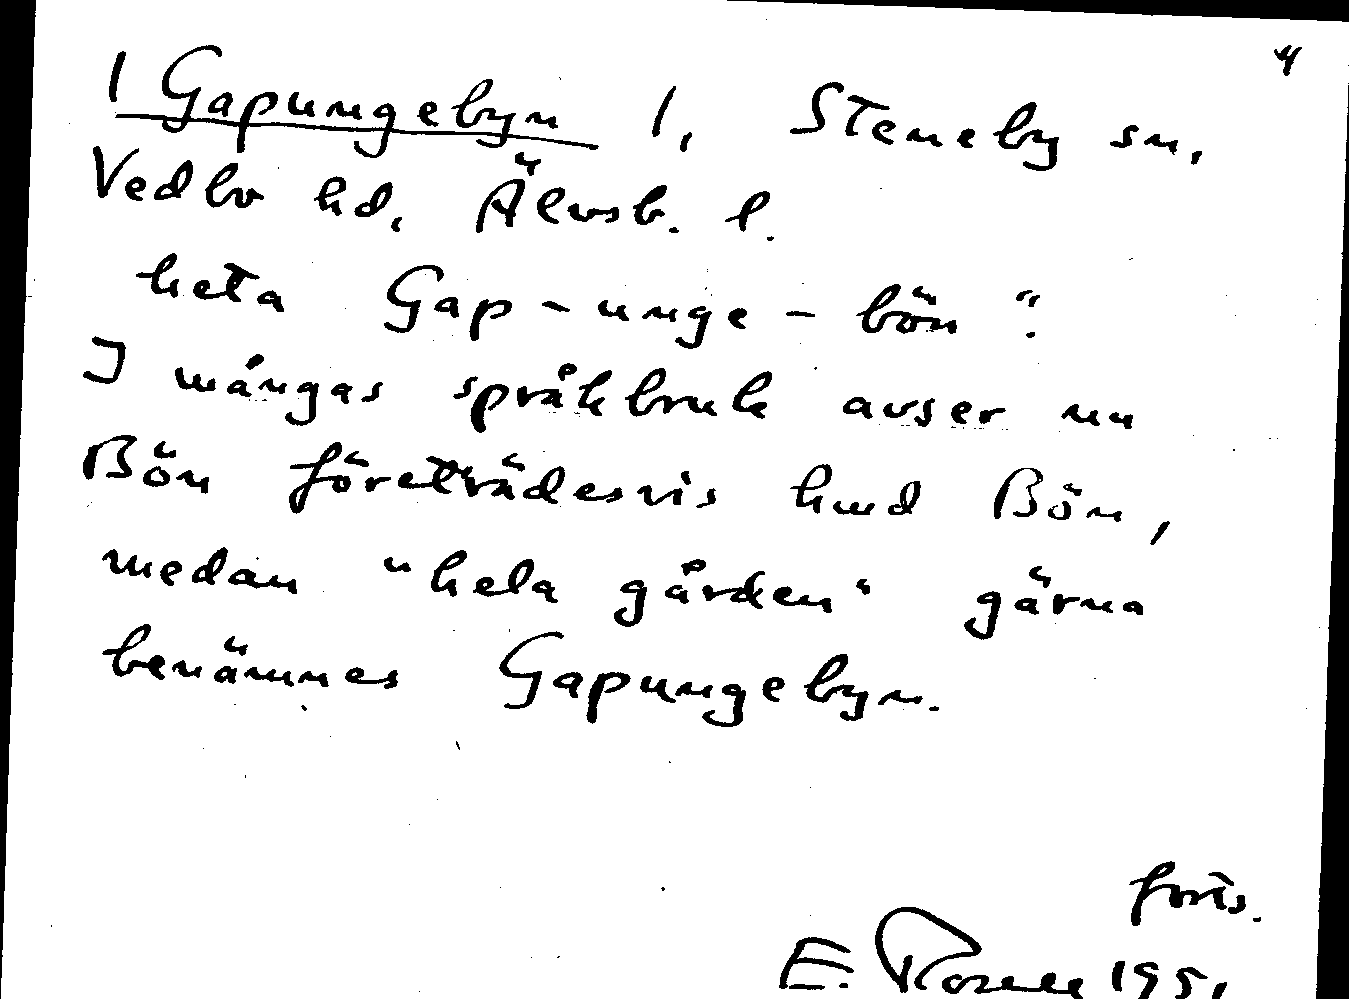 4
1 Gapungebyn 1, Steneby sn,
Vedbo hd, Älvsb. l.
heta Gap-unge-bön".
I mångas språkbruk avser nu
Bön företrädesvis hmd Bön,
medan "hela gården" gärna
benämnes Gapungebyn.
forts.
E. 1951